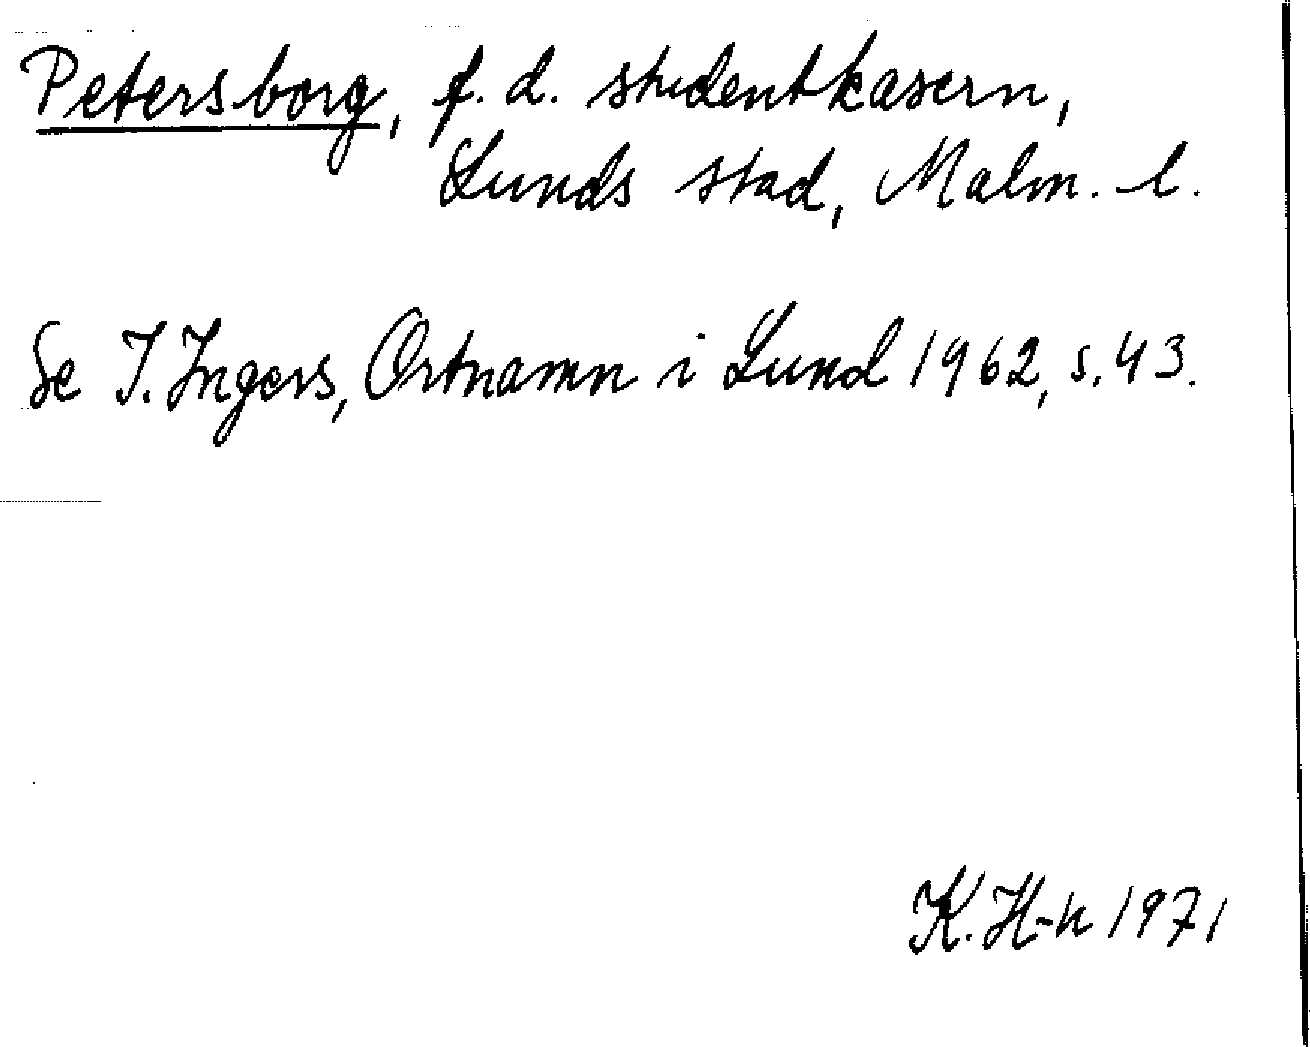 Petersborg, f. d. studentkasern,
Lunds stad, Malm. l.
Se I. Ingers, Ortnamn i Lund 1962, s. 43.
K. H-n 1971